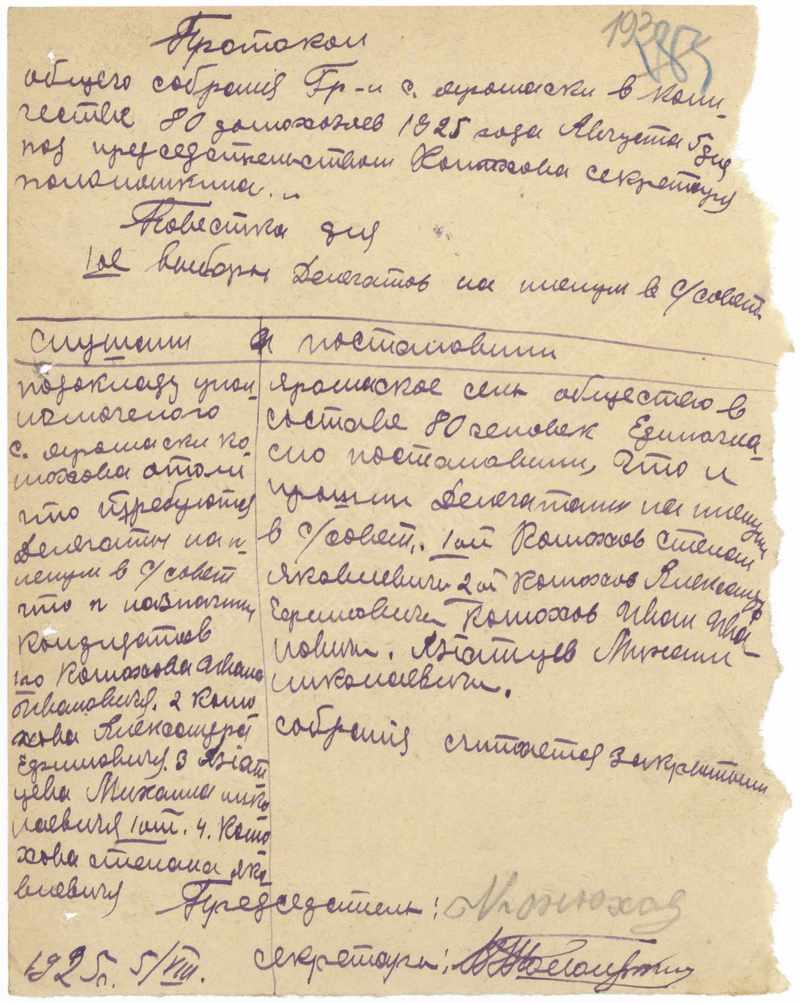 193
385
Протокол
общего собрания Гр-н с. Ярошаски в коли-
честве 80 домохозяев 1925 года Августа 5 дня
под председательством Конюхова секретаря
Полаюшкина.
Повестка дня
1ое выборы Делегатов на пленум в С/совет
слушали и постановили
подокладу упол
номоченого
с. Ярошаски ко
нюхова отом
что требуются
Делегаты на п
ленум в С/совет
что и назначены
кондидатов
1го Конюхова Ивана
Ивановича. 2 Коню
хова Александра
Ефимовича. 3 Азіат
цева Михаила нико
лаевича 1от. 4. Коню
хова степана яко
влевича
Ярошаское сель общество в
составе 80 человек Единоглас-
сно постановили, что и
прошли Делегатами на пленум
в С/совет. 1ый Конюхов степан
Яковлевичь 2ой Конюхов Александр
Ефимовичь Конюхов Иван Ива-
новичь. Азіатцев Михаил
николаевичь.
собрания считается закрытым
Председатель: Конюхов
1925г. 5/VIII. секретарь: